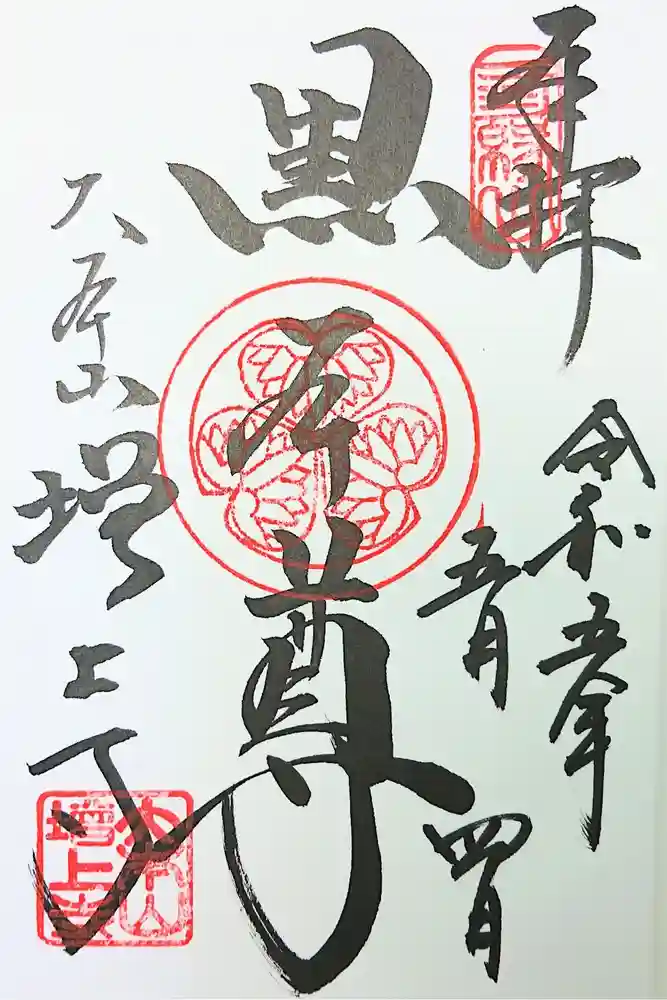 奉拝
令和五年
五月
四日
黒本尊
大本山
増上寺
大本山
増上寺